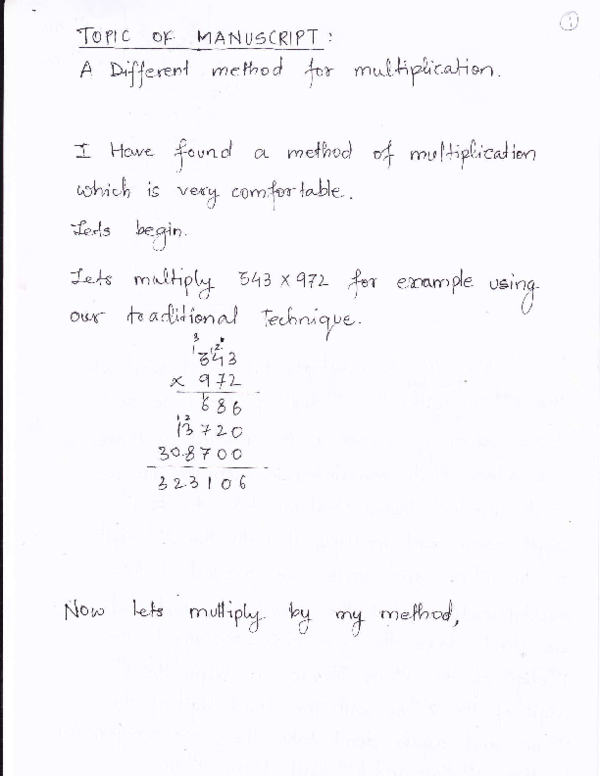 1
TOPIC OF MANUSCRIPT :
A Different method for multiplication.
I Have found a method of multiplication
which is very comfortable.
Lets begin.
Lets multiply 343 x 942 for example using
our traditional technique.
3
1 1 2
343
x 942
1
686
1 2
13720
308700
323106
Now lets multiply by my method,